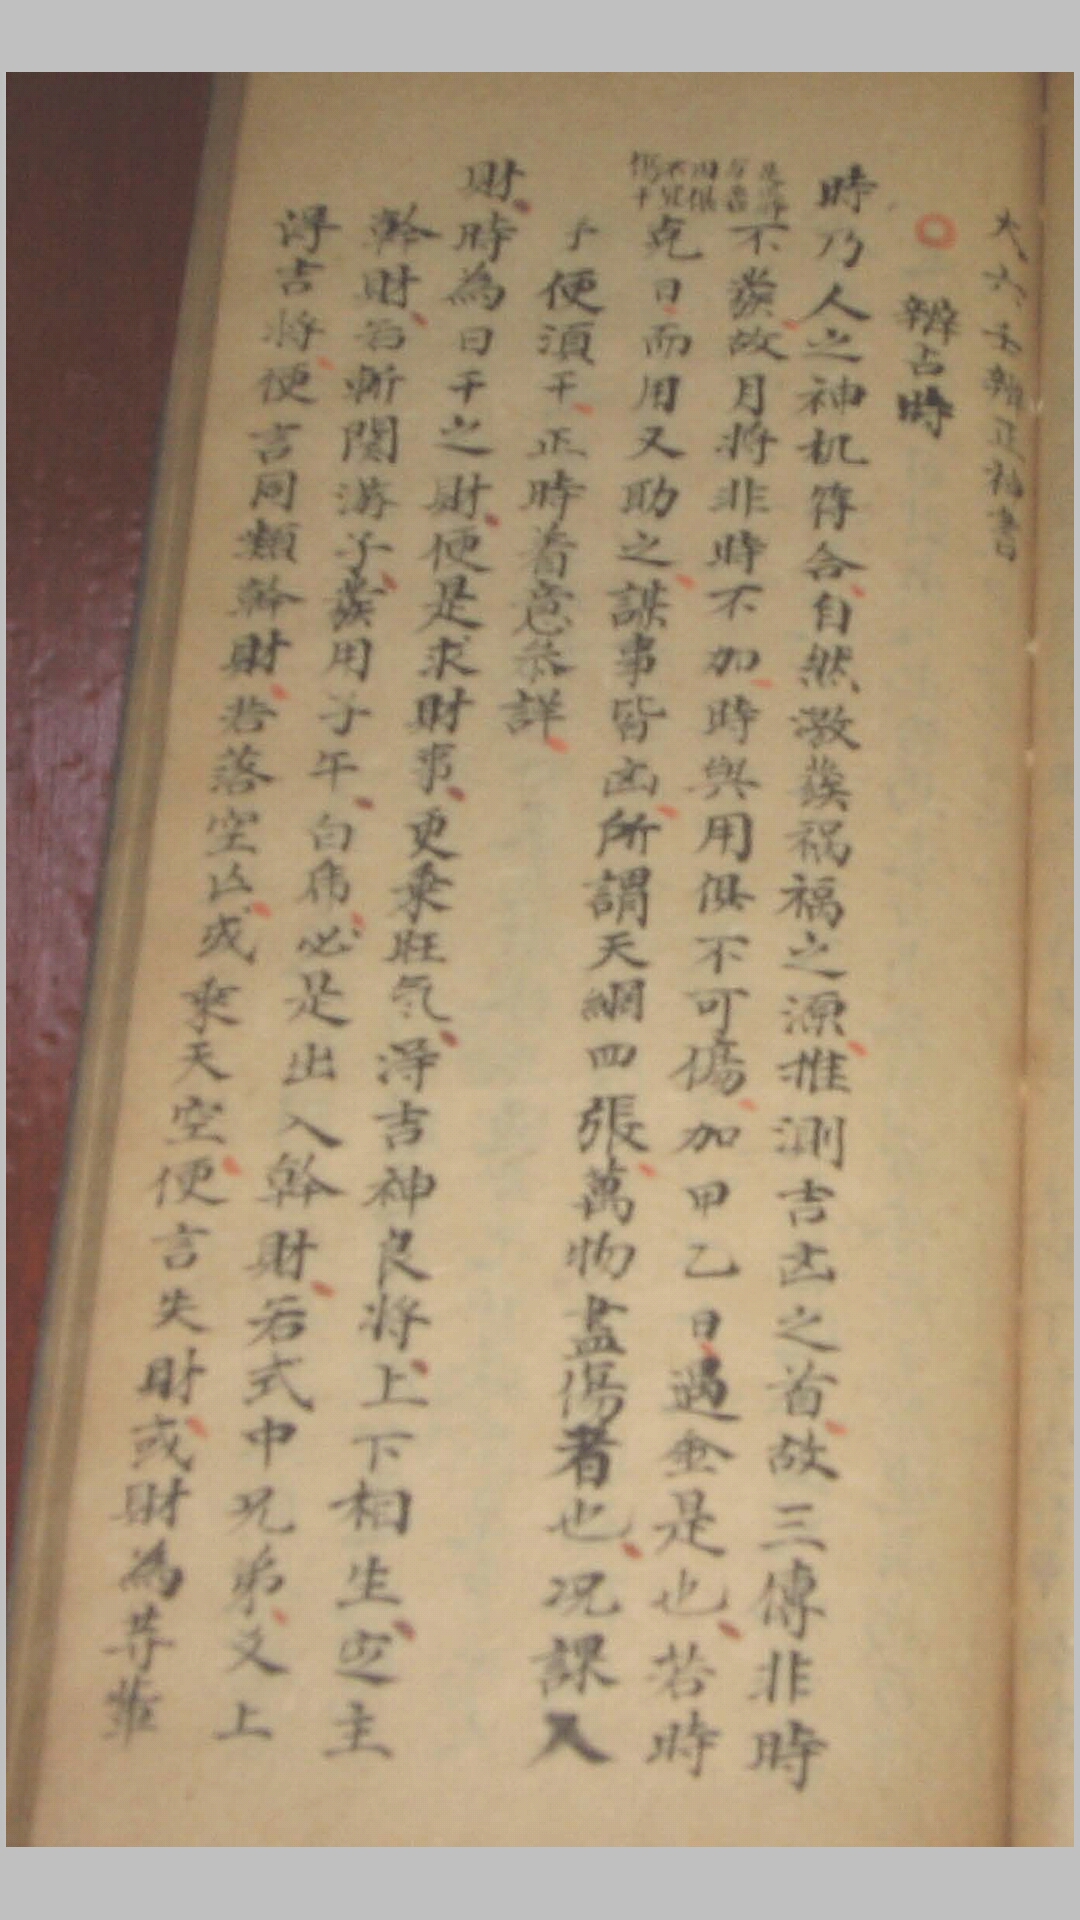 大六壬辨正秘書
辨占時
時乃人之神机符合自然激發禍福之源推測吉凶之首故三傳非時
不發故月將非時不加時與用俱不可傷加甲乙日遇金是也若時
克日而用又助之謀事皆凶所謂天網四張萬物盡傷者也况課入
便須干正時着意叅詳
財時為日干之財便是求財事更乗旺気淂吉神良将上下相生定主
幹財若斬関游子發用子午白虎必是出入幹財若式中兄弟爻上
淂吉将便言同類幹財若落空亡或乘天空便言失財或財為